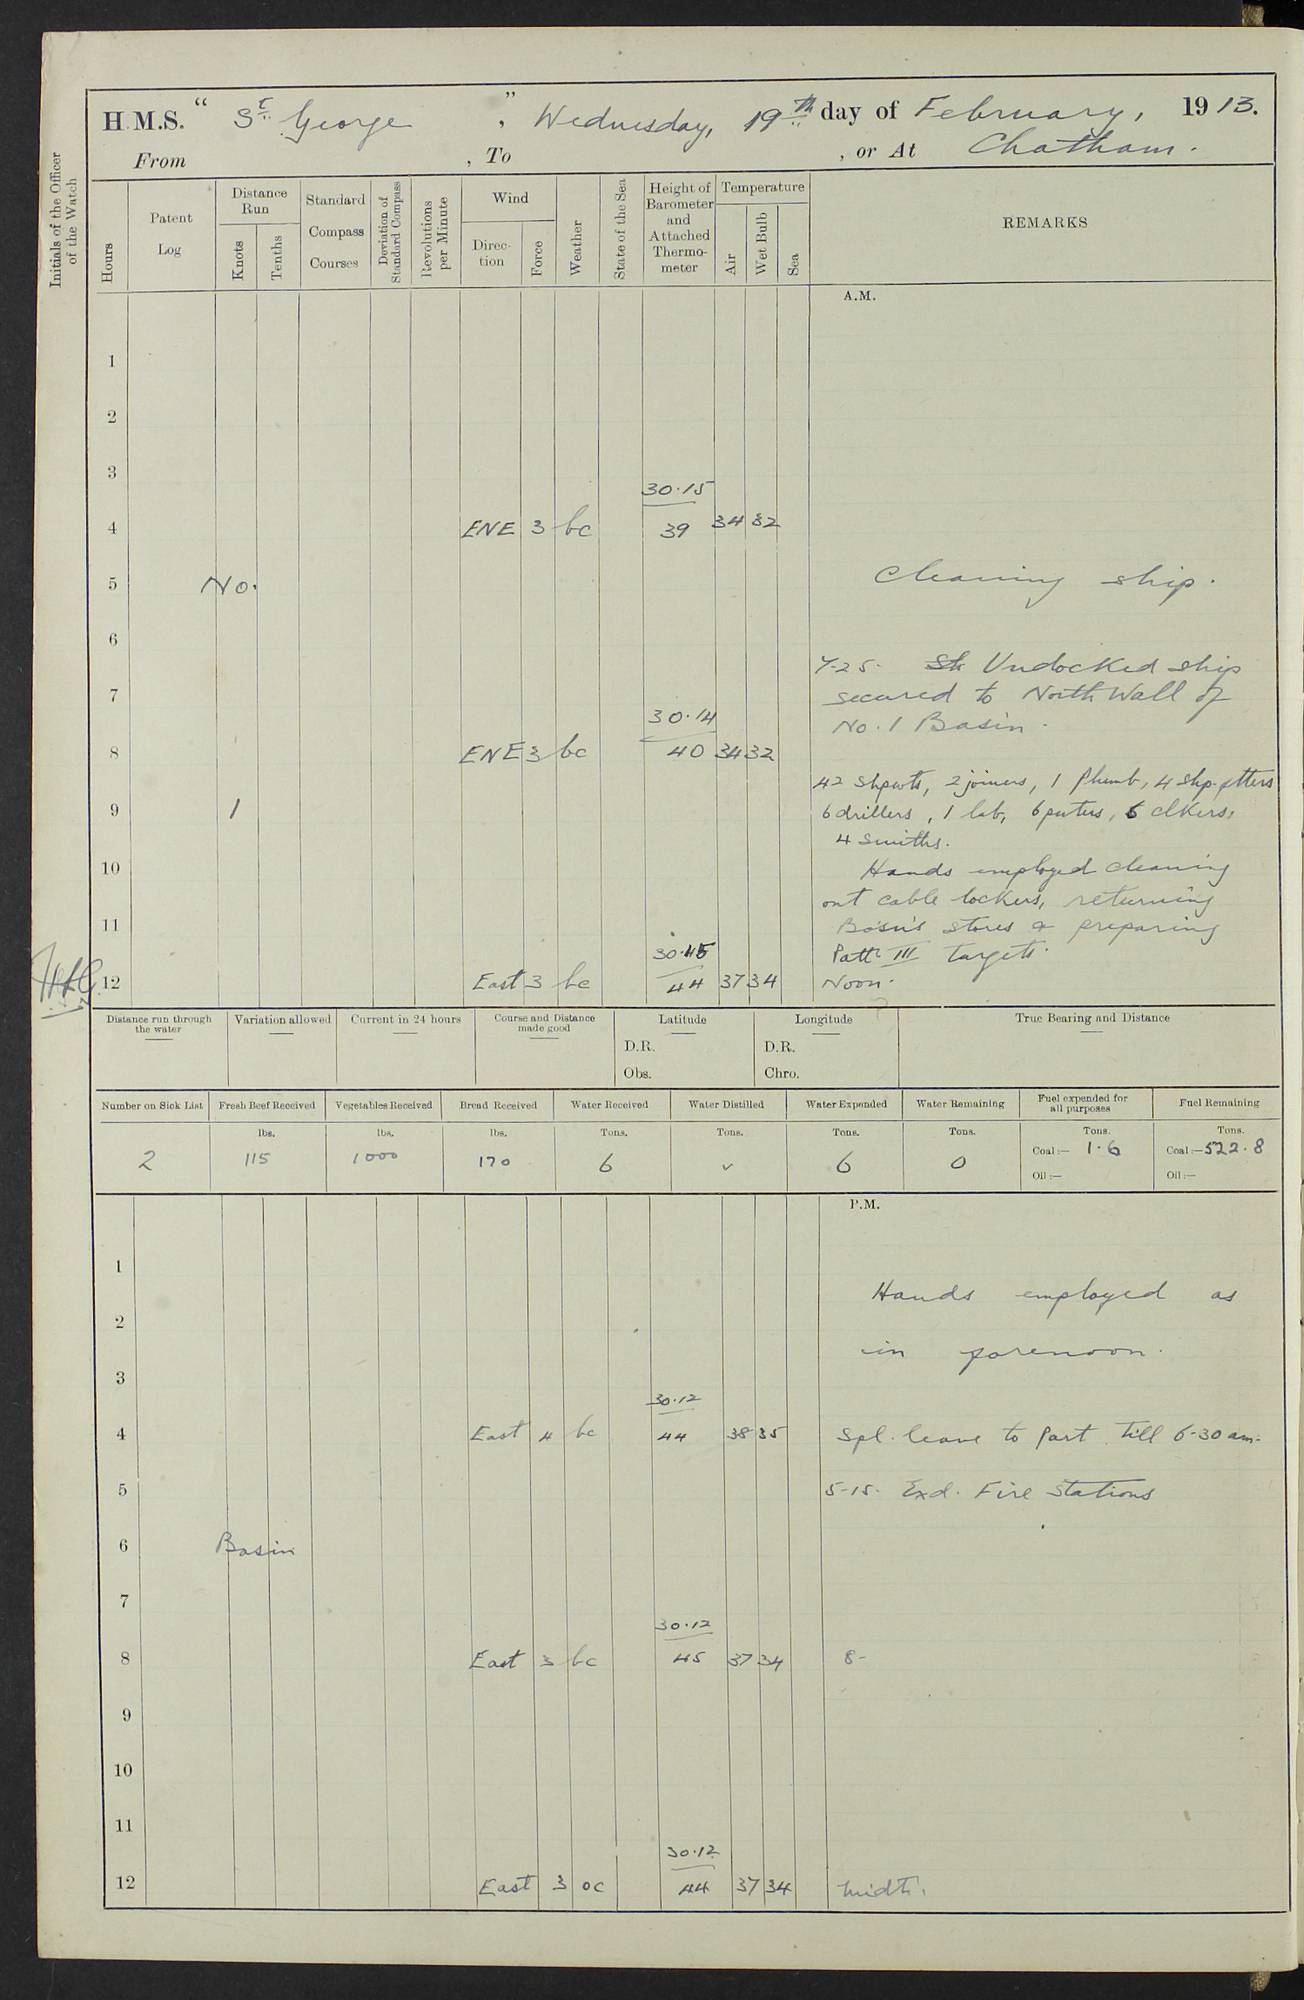 H.M.S. " St. George ", Wednesday, 19th day of February, 1913.
From , To , or At Chatham.
Initials of the Officer of the Watch
Hours
Patent Log
Distance Run
Knots
Tenths
Standard Compass Courses
Deviation of Standard Compass
Revolutions per Minute
Wind
Direction
Force
Weather
State of the Sea
Height of Barometer and Attached Thermometer
Temperature
Air
Wet Bulb
Sea
REMARKS
A.M.
1
2
3
30.15
4 ENE 3 bc 39 34 32
5 No. Cleaning ship.
6
7.25. Undocked ship
7 secured to North Wall of
30.14 No. 1 Basin.
8 ENE 3 bc 40 34 32
42 Shpwts, 2 joiners, 1 Plumb, 4 Shp. ftters
9 1 6 drillers, 1 lab, 6 pnters, 6 clkers,
4 Smiths.
10 Hands employed cleaning
out cable lockers, returning
11 Bosun's stores & preparing
30.15 Pattn III targets.
HLG 12 East 3 bc 44 37 34 Noon.
Distance run through the water
Variation allowed
Current in 24 hours
Course and Distance made good
Latitude
D.R.
Obs.
Longitude
D.R.
Chro.
True Bearing and Distance
Number on Sick List Fresh Beef Received Vegetables Received Bread Received Water Received Water Distilled Water Expended Water Remaining Fuel expended for all purposes Fuel Remaining
lbs. lbs. lbs. Tons. Tons. Tons. Tons. Tons. Tons.
2 115 1000 170 6 ✓ 6 0 Coal:— 1.6 Coal:—522.8
Oil:— Oil:—
P.M.
1
Hands employed as
2
in forenoon.
3
30.12
4 East 4 bc 44 38 35 Spl. leave to Part till 6-30 am.
5 5-15. Exd. Fire Stations
6 Basin
7
30.12
8 East 3 bc 45 37 34 8-
9
10
11
30.12
12 East 3 oc 44 37 34 Midt.